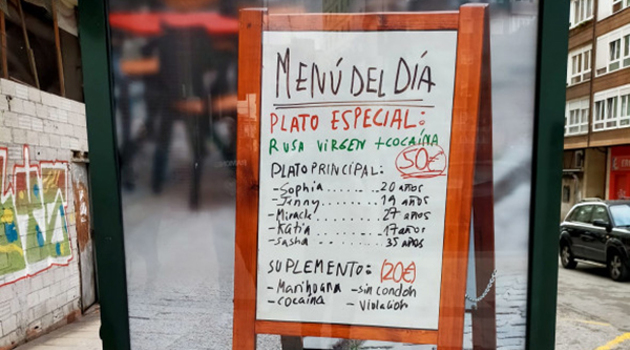 MENÚ DEL DÍA
PLATO ESPECIAL:
RUSA VIRGEN + COCAÍNA
50€
PLATO PRINCIPAL:
- Sophia ........ 20 años
- Jenny ........ 19 años
- Miracle ........ 27 años
- Katia ........ 17 años
- Sasha ........ 35 años
SUPLEMENTO: 20€
- Marihuana - sin condón
- cocaína - Violación